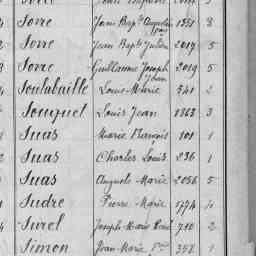 Sorre Jean Bapte Augustin 1831 8
Sorre Jean Bapte Julien 2017 5
Sorre Guillaume Joseph Jean 2019 5
Soulabaille Louis Marie 541 2
Souquet Louis Jean 1863 3
Suas Marie François 101 1
Suas Charles Louis 236 1
Suas Auguste Marie 2056 5
Sudre Pierre Marie 1774
Surel Joseph Marie René 710 2
Simon Jean Marie 358 1